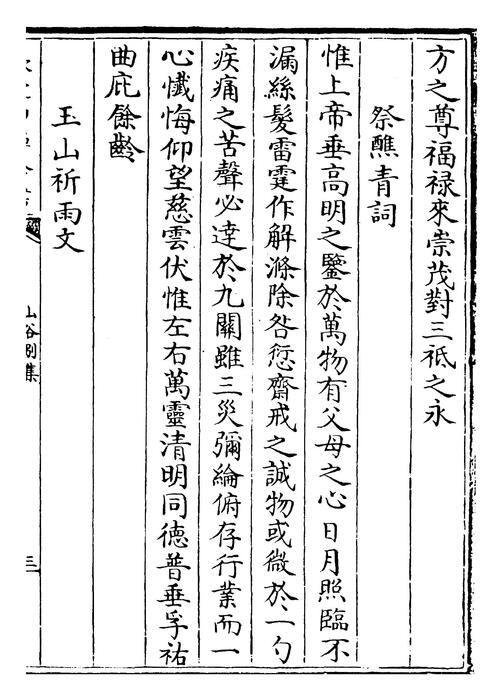 方之尊福禄來崇茂對三祗之永
祭醮青詞
惟上帝垂高明之鑒於萬物有父母之心日月照臨不
漏絲髮雷霆作解滌除咎愆齋戒之誠物或微於一勺
疾痛之苦聲必達於九關雖三災彌綸俯存行業而一
心懺悔仰望慈雲伏惟左右萬靈清明同德普垂孚祐
曲庇餘齡
玉山祈雨文
山谷別集
三